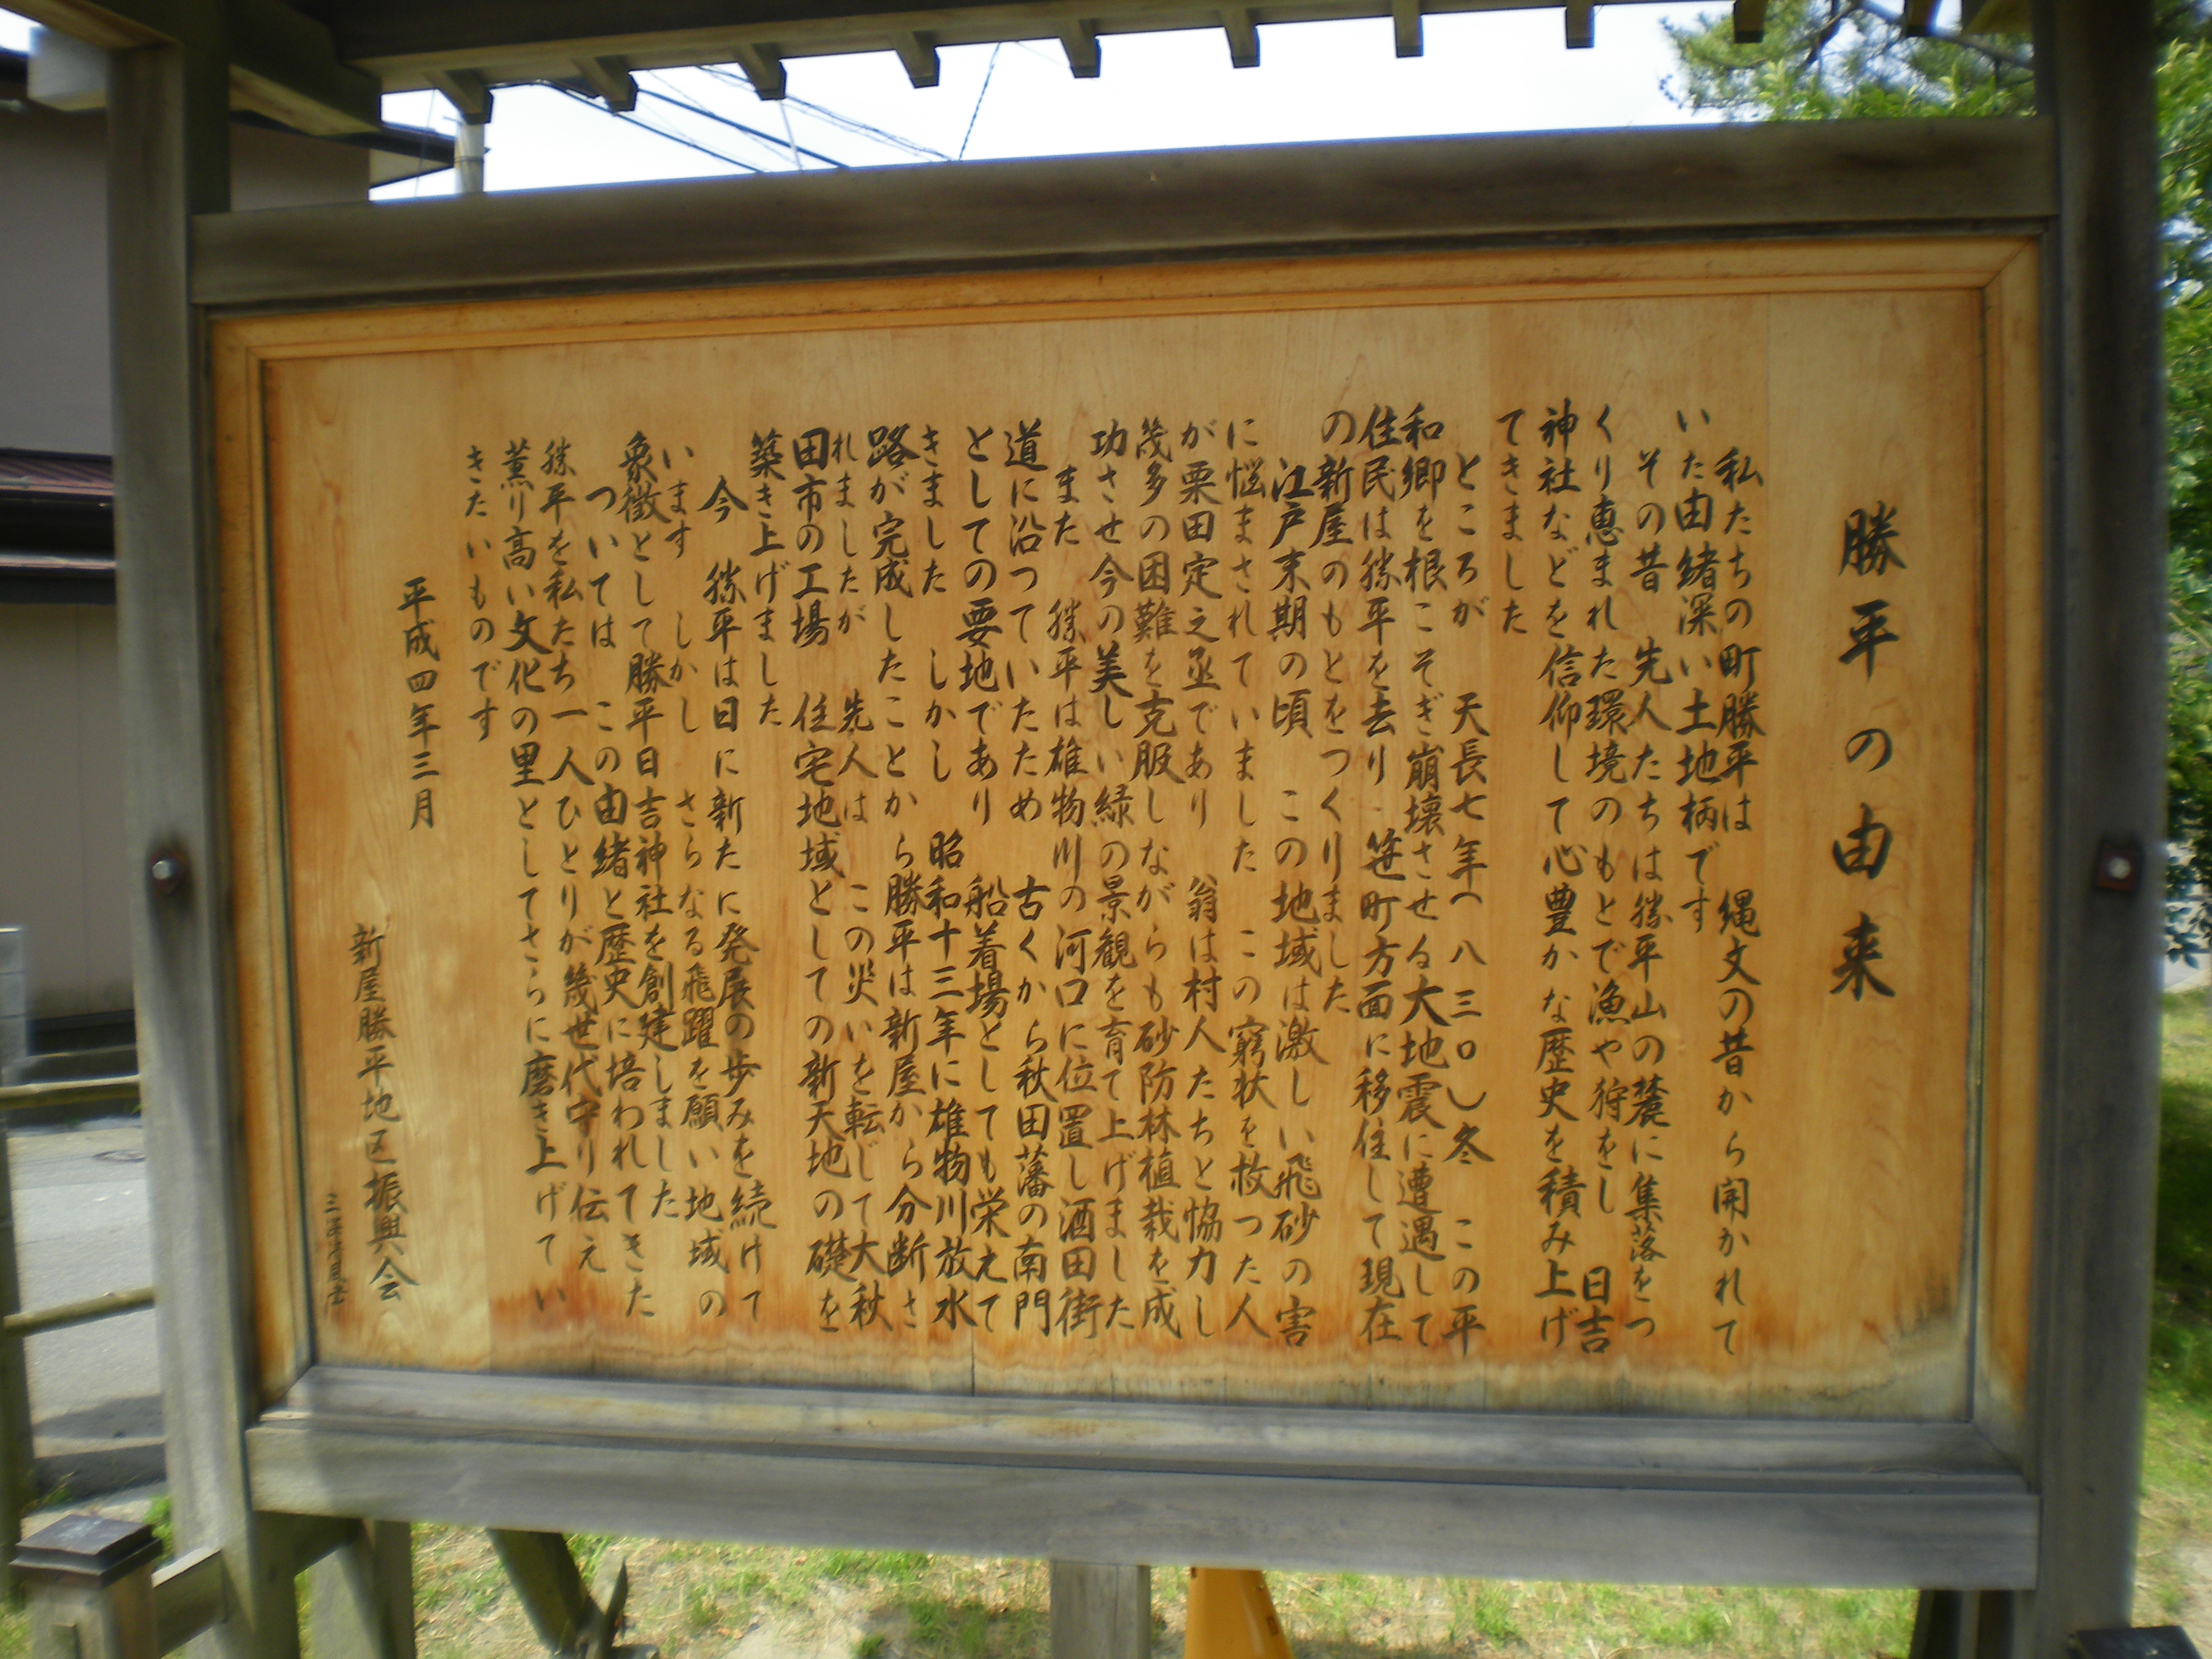 勝平の由来
私たちの町勝平は　縄文の昔から開かれて
いた由緒深い土地柄です
その昔　先人たちは勝平山の麓に集落をつ
くり恵まれた環境のもとで漁や狩をし　日吉
神社などを信仰して心豊かな歴史を積み上げ
てきました
ところが　天長七年（八三〇）冬　この平
和郷を根こそぎ崩壊させる大地震に遭遇して
住民は勝平を去り　笹町方面に移住して現在
の新屋のもとをつくりました
江戸末期の頃　この地域は激しい飛砂の害
に悩まされていました　この窮状を救った人
が栗田定之丞であり　翁は村人たちと協力し
幾多の困難を克服しながらも砂防林植栽を成
功させ今の美しい緑の景観を育て上げました
また　勝平は雄物川の河口に位置し酒田街
道に沿っていたため　古くから秋田藩の南門
としての要地であり　船着場としても栄えて
きました　しかし　昭和十三年に雄物川放水
路が完成したことから勝平は新屋から分断さ
れましたが　先人は　この災いを転じて大秋
田市の工場　住宅地域としての新天地の礎を
築き上げました
今　勝平は日に新たに発展の歩みを続けて
います　しかし　さらなる飛躍を願い地域の
象徴として勝平日吉神社を創建しました
ついては　この由緒と歴史に培われてきた
勝平を私たち一人ひとりが幾世代守り伝え
薫り高い文化の里としてさらに磨き上げてい
きたいものです
平成四年三月
新屋勝平地区振興会